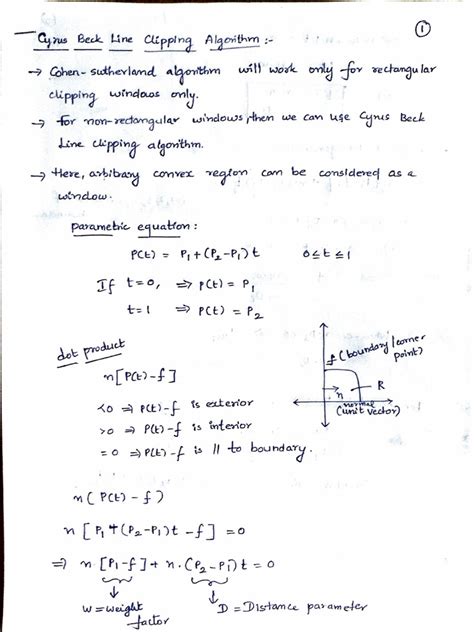 ①
Cyrus Beck Line Clipping Algorithm :-
→ Cohen-sutherland algorithm will work only for rectangular
clipping windows only.
→ for non-rectangular windows, then we can use Cyrus Beck
Line clipping algorithm.
→ Here, arbitary convex region can be considered as a
window.
parametric equation :
P(t) = P₁ + (P₂ - P₁) t    0 ≤ t ≤ 1
If t=0, ⇒ P(t) = P₁
t=1 ⇒ P(t) = P₂
dot product
n [P(t) - f]
<0 ⇒ P(t) - f is exterior
>0 ⇒ P(t) - f is interior
=0 ⇒ P(t) - f is || to boundary.
f (boundary / corner
point)
n
R
normal
(unit vector)
n ( P(t) - f )
n [ P₁ + (P₂ - P₁) t - f ] = 0
⇒ n. [P₁ - f] + n. (P₂ - P₁) t = 0
W = weight factor
D = Distance parameter